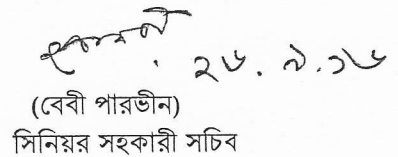 ২৬.৯.১৬
(বেবী পারভীন)
সিনিয়র সহকারী সচিব